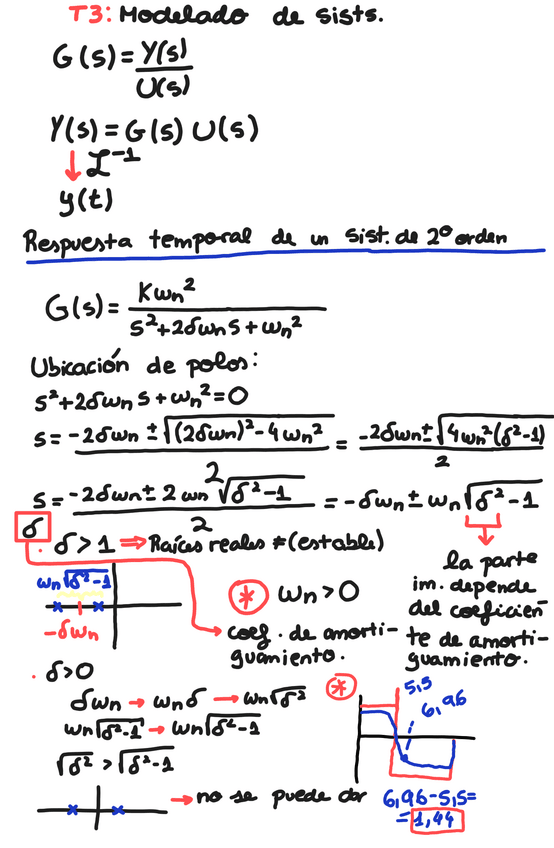 T3: Modelado de sists.
G(s) = Y(s)/U(s)
Y(s) = G(s) U(s)
↓ ℒ⁻¹
y(t)
Respuesta temporal de un sist. de 2º orden
G(s) = Kωn²/(s²+2δωns+ωn²)
Ubicación de polos:
s²+2δωns+ωn²=0
s = (-2δωn ± √((2δωn)²-4ωn²))/2 = (-2δωn ± √(4ωn²(δ²-1)))/2
s = (-2δωn ± 2ωn√(δ²-1))/2 = -δωn ± ωn√(δ²-1)
δ
· δ>1 ⇒ Raíces reales ≠ (estable)
la parte
im. depende
del coeficien
te de amorti-
guamiento.
ωn√(δ²-1)
-δωn
* ωn>0
coef. de amorti-
guamiento.
· δ>0
δωn → ωnδ → ωn√δ²
ωn√(δ²-1) → ωn√(δ²-1)
√δ² > √(δ²-1)
→ no se puede dar
*
5,5
6,96
6,96-5,5=
=1,44